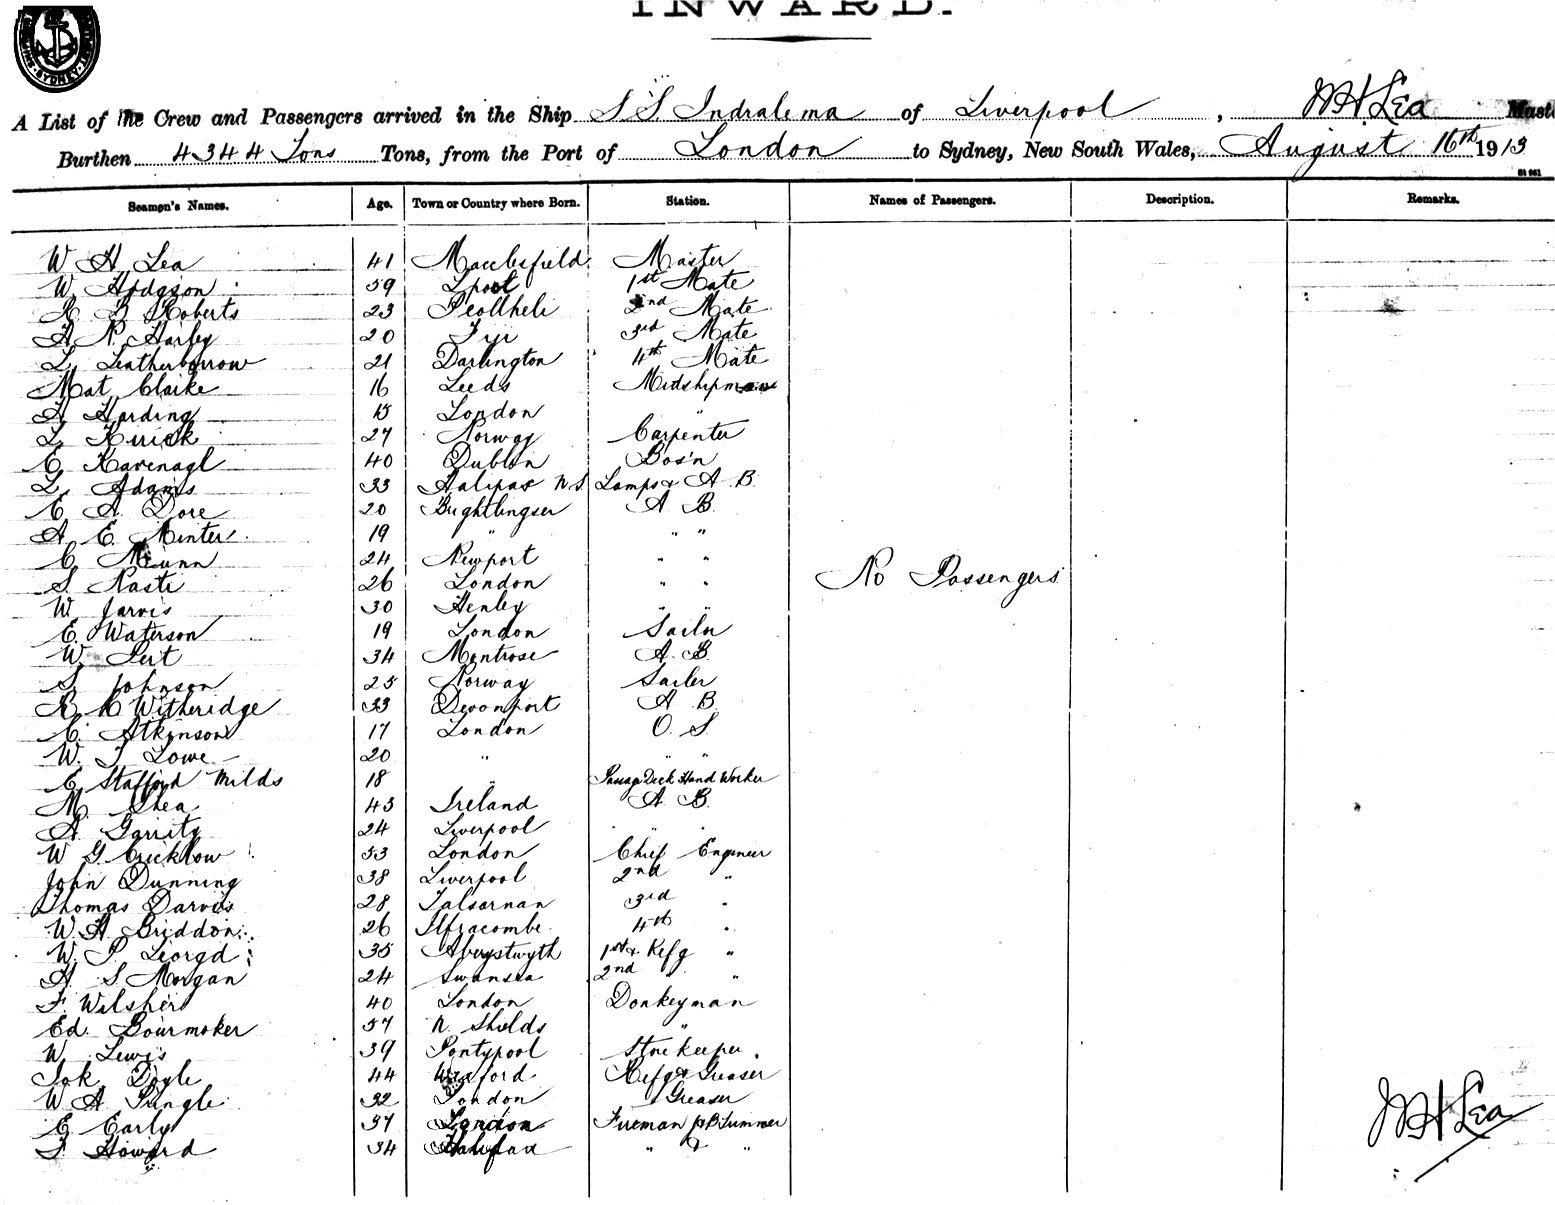 INWARD.
SYDNEY
A List of the Crew and Passengers arrived in the Ship S S Indralema of Liverpool, W H Lea Mast
Burthen 4344 Tons Tons, from the Port of London to Sydney, New South Wales, August 16th 1913
Seamen's Names. Age. Town or Country where Born. Station. Names of Passengers. Description. Remarks.
W H Lea 41 Macclesfield Master
W Hodgson 59 Lpool 1st Mate
R B Roberts 23 Peollheli 2nd Mate
A N Harley 20 Fiji 3rd Mate
L Leatherbarrow 21 Darlington 4th Mate
Mat Clarke 16 Leeds Midshipman
A Harding 15 London "
L 27 Norway Carpenter
C Kavenagh 40 Dublin Bos'n
L Adams 33 Halifax N.S Lamps & A. B.
C A Dore 20 Brightlingsea A B.
A E Minter 19 " " "
C Munn 24 Newport " "
S Naste 26 London " " No Passengers
W Jarvis 30 Henley " "
E Waterson 19 London Sailor
W Pert 34 Montrose A. B.
S Johnson 25 Norway Sailer
R K Witheridge 33 Devonport A B.
C Atkinson 17 London O. S.
W. T Lowe 20 " " "
E Stafford Milds 18 " Passage Deck Hand Worker
M Shea 43 Ireland A. B.
A Garrity 24 Liverpool " "
W G Cricklow 53 London Chief Engineer
John Dunning 38 Liverpool 2nd "
Thomas Darvis 28 Talsarnau 3rd "
W. H Briddon 26 Ilfracombe 4th "
W. P 35 Aberystwyth 1st & Refg "
H S Morgan 24 Swansea 2nd " "
F Wilsher 40 London Donkeyman
Ed Bourmoker 57 N. Shields "
W Lewis 39 Pontypool Storekeeper.
Jok Doyle 44 Wexford Refg & Greaser
W A Pringle 32 London Greaser
E Early 37 London Fireman & Trimmer
F Howard 34 Halifax " & "
W H Lea